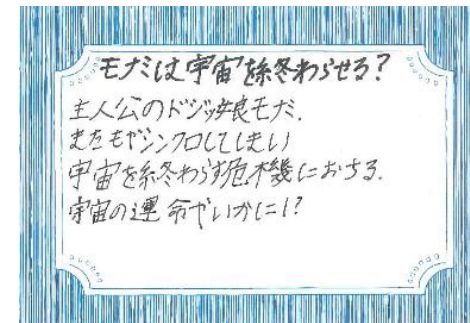 モナミは宇宙を終わらせる?
主人公のドジッ娘モナミ、
またもやシンクロしてしまい
宇宙を終わらす危機におちる。
宇宙の運命やいかに!?